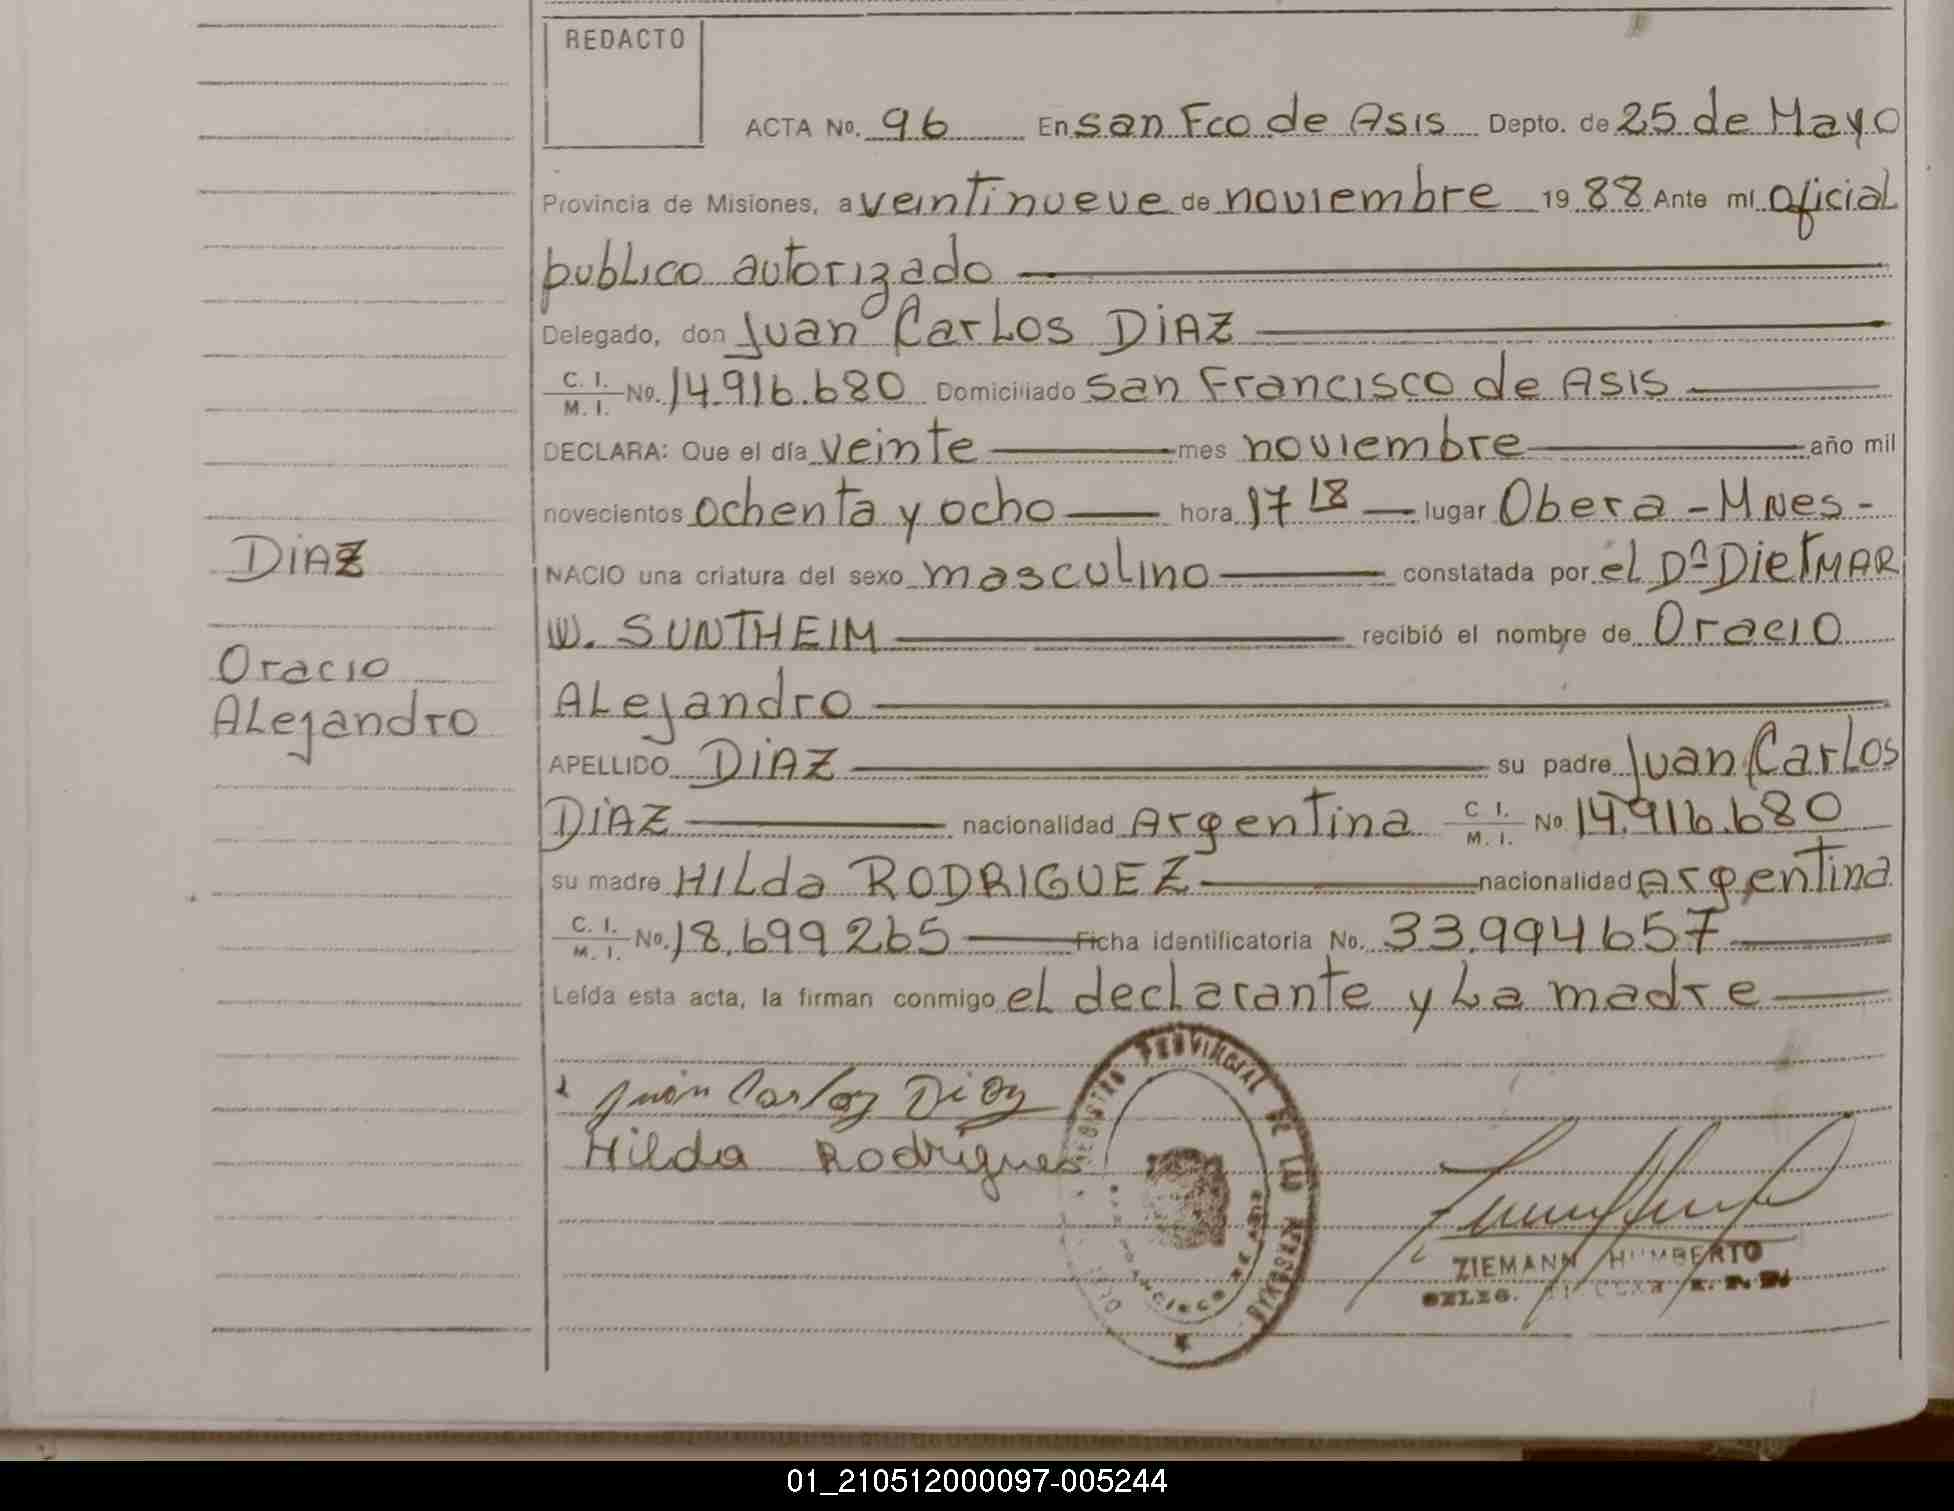 REDACTO
ACTA No. 96 En san Fco de Asis Depto. de 25 de Mayo
Provincia de Misiones, a veintinueve de noviembre 19 88 Ante mi oficial
publico autorizado
Delegado, don Juan Carlos DIAZ
C. I. M. I. No. 14.916.680 Domiciliado san Francisco de Asis
DECLARA: Que el día veinte mes noviembre año mil
novecientos ochenta y ocho hora 17 18 lugar Obera - MNes -
DIAZ
NACIO una criatura del sexo masculino constatada por el Dº Dietmar
W. SUNTHEIM recibió el nombre de Oracio
Oracio
Alejandro
Alejandro
APELLIDO DIAZ su padre Juan Carlos
DIAZ nacionalidad Argentina C I. M. I. No 14.916.680
su madre Hilda RODRIGUEZ nacionalidad Argentina
C. I. M. I. No. 18.699265 Ficha identificatoria No. 33.994657
Leída esta acta, la firman conmigo el declarante y La madre
Juan Carlos Diaz
Hilda Rodrigues
REGISTRO PROVINCIAL DE LAS PERSONAS
FRANCISCO DE ASIS
ZIEMANN HUMBERTO
DELEG.
01_210512000097-005244